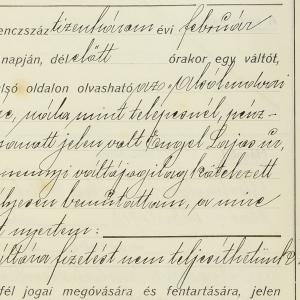 enczszáz tizenhárom évi február
napján, dél előtt órakor egy váltót,
lső oldalon olvasható az Alsólendvai
nála mint telepesnél, pénz-
jelen volt Engel Lajos úr,
mennyi váltójogilag kötelezett
bemutattam, a mire
t nyertem:
fizetést nem teljesíthetünk
fél jogai megóvására és fentartására, jelen